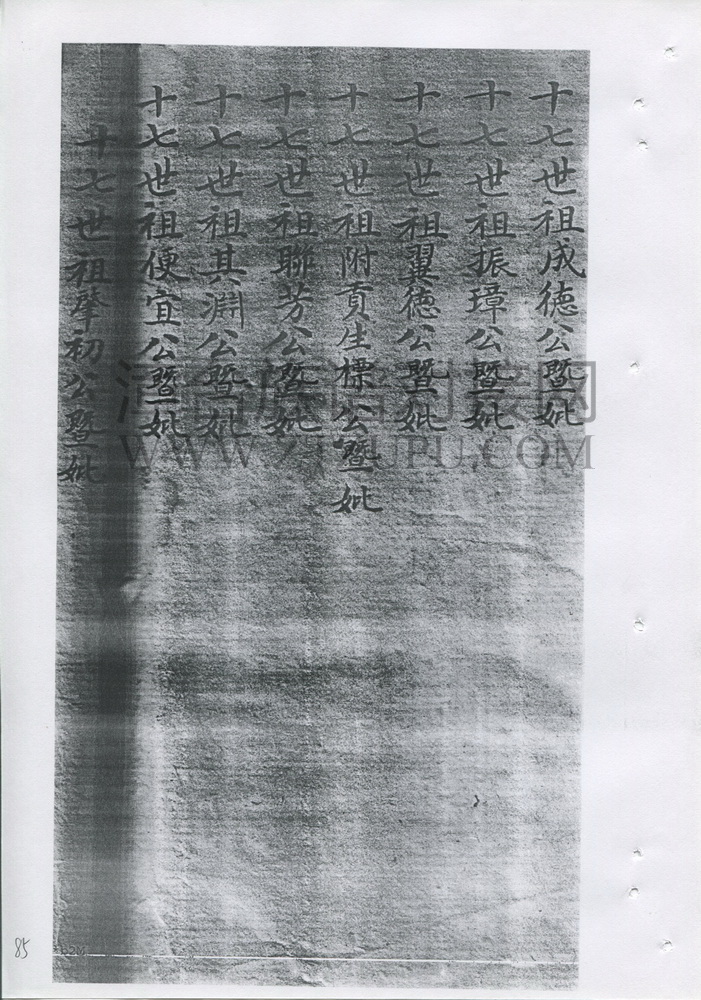 十七世祖成德公暨妣
十七世祖振璋公暨妣
十七世祖翼德公暨妣
十七世祖附貢生標公暨妣
十七世祖聯芳公暨妣
十七世祖其淵公暨妣
十七世祖便宜公暨妣
十七世祖肇初公暨妣
85